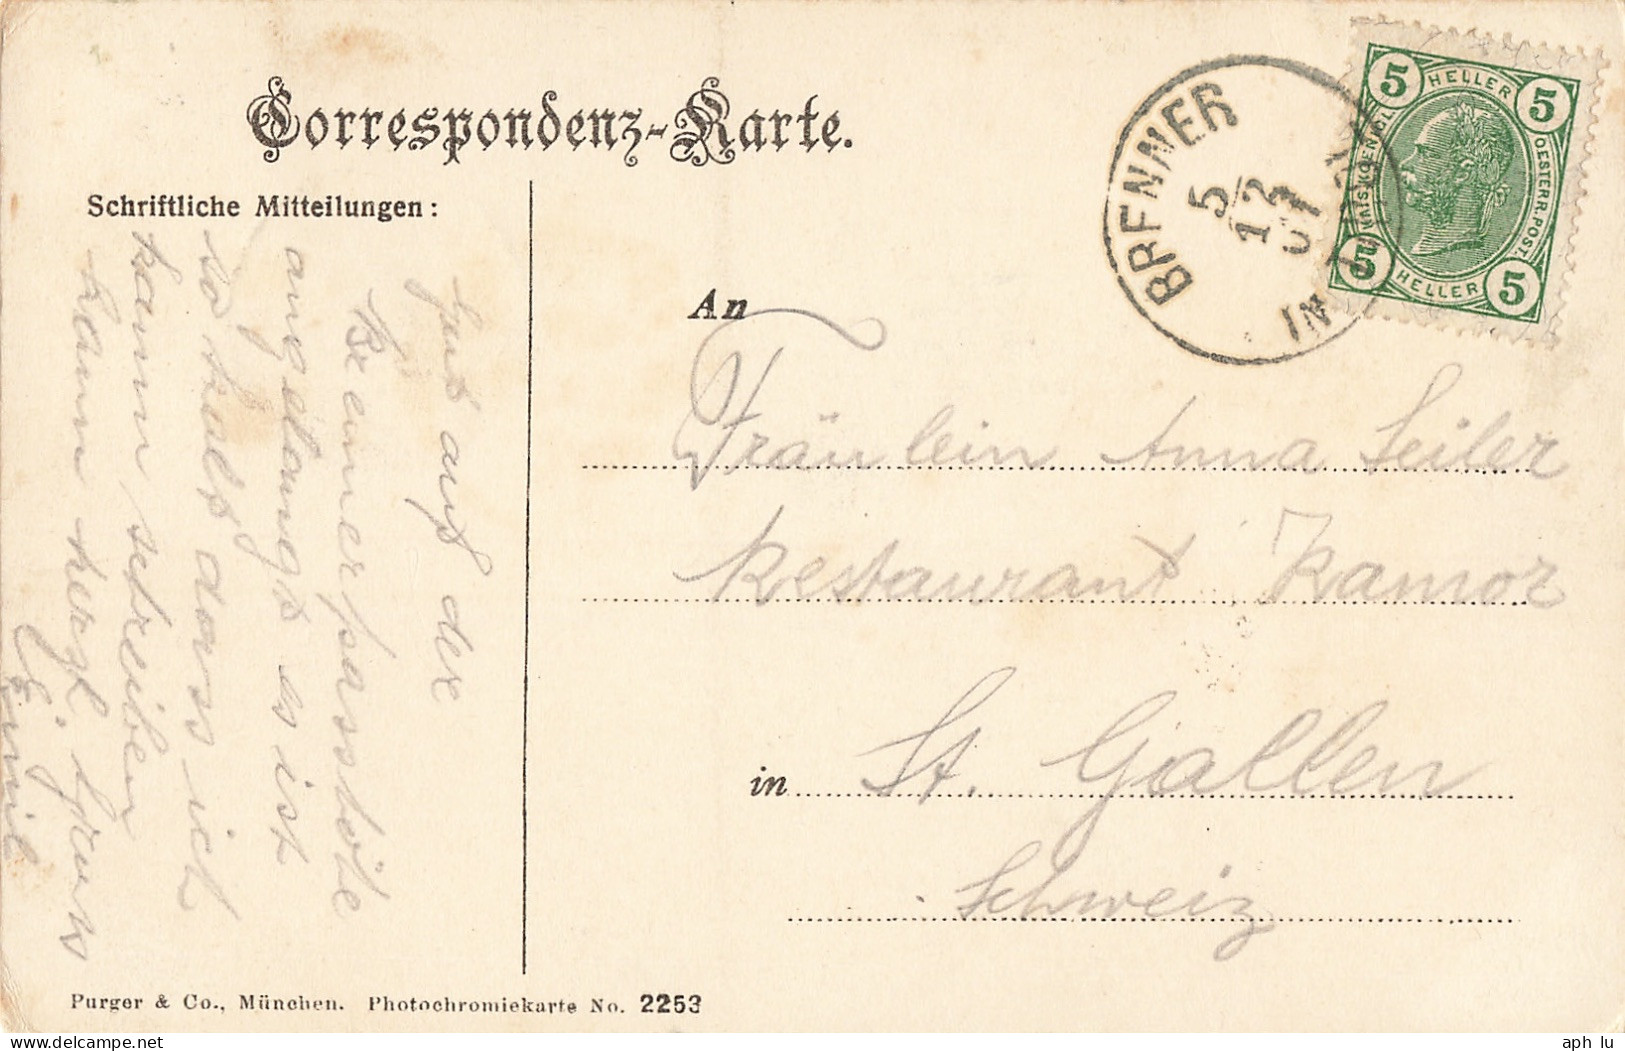 Correspondenz-Karte.
Schriftliche Mitteilungen:
auf der
Brennerpasshöhe
angelangt es ist
so kalt dass ich
kaum schreiben
kann herzl. Gruss
Emil
An
Fräulein Anna Seiler
Restaurant Kamor
in St. Gallen
Schweiz
BRENNER
5/12
IN TIROL
5 HELLER 5
OESTERR. POST.
5 HELLER 5
Purger & Co., München. Photochromiekarte No. 2253
aph lu